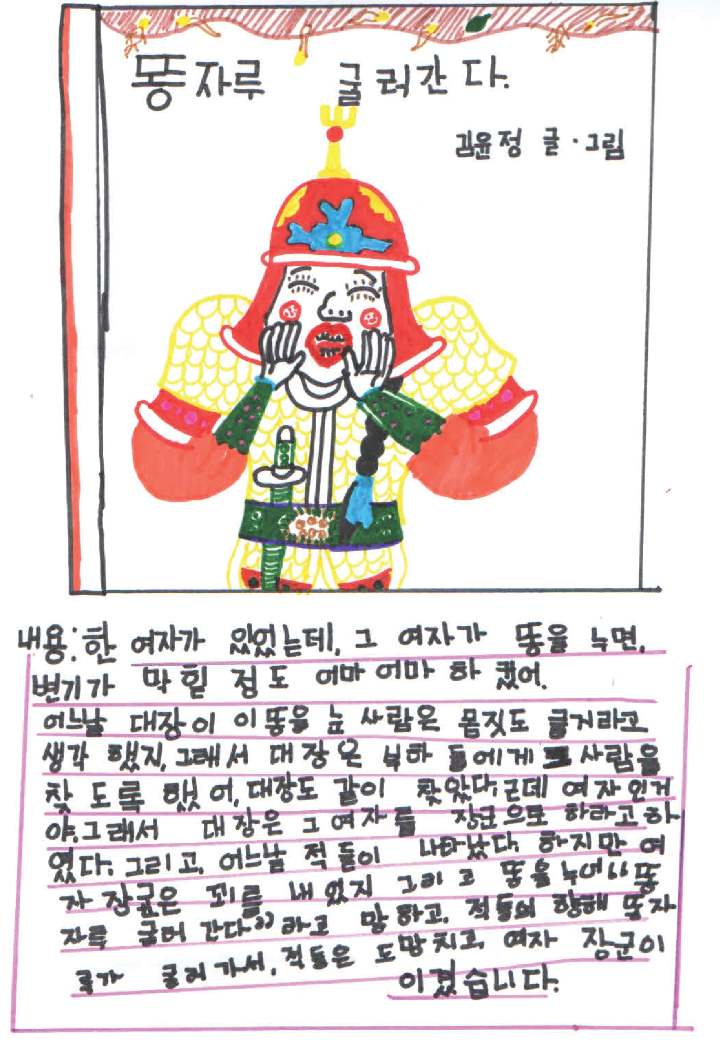 똥자루 굴러간다.
김윤정 글·그림
내용: 한 여자가 있었는데, 그 여자가 똥을 누면,
변기가 막힐 정도 어마어마 하 켔어.
어느날 대장이 이똥을 눈 사람은 몸짓도 클거라고
생각 했지, 그래서 대장은 부하 들에게 그 사람을
찾 도록 했 어, 대장도 같이 찾았다. 근데 여자인거
야. 그래서 대장은 그 여자를 장군으로 하라고 하
였다. 그리고, 어느날 적 들이 나타났다. 하지만 여
자 장군은 꾀를 내 었지 그리고 똥을 누어 "똥
자루 굴러 간다" 라고 망 하고, 적들의 향해 똥자
루가 굴러가서, 적들은 도망치고, 여자 장군이
이겼습니다.